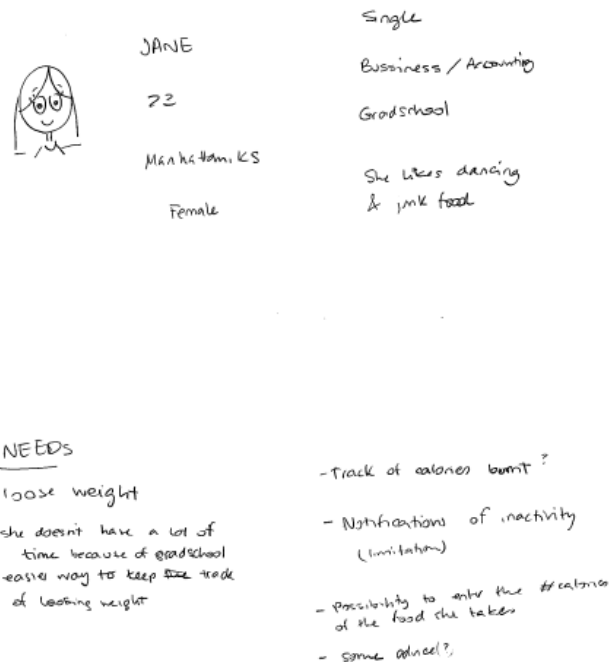 JANE
23
Manhattan, KS
Female
Single
Bussiness / Accounting
Gradschool
She likes dancing
& junk food
NEEDS
loose weight
she doesn't have a lot of
time because of gradschool
easier way to keep track
of loosing weight
- Track of calories burnt?
- Notifications of inactivity
(limitation)
- Possibility to enter the #calories
of the food she takes
- Some advice?